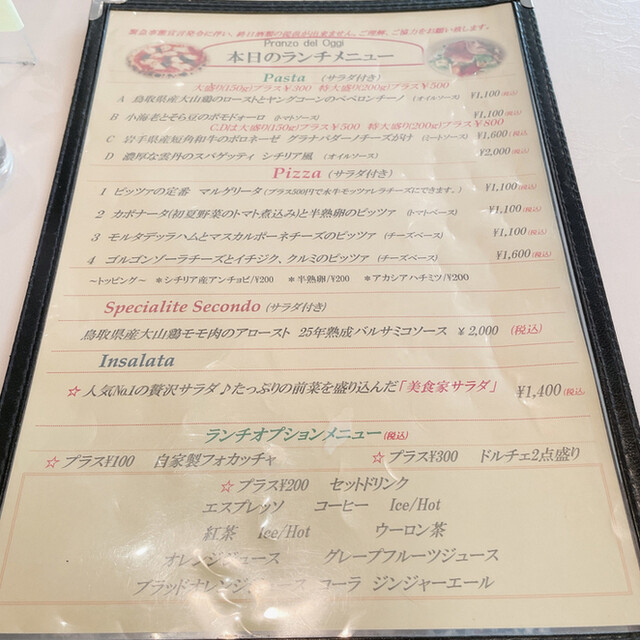 緊急事態宣言発令に伴い、終日酒類の提供が出来ません。ご理解、ご協力をお願い致します。
Pranzo del Oggi
本日のランチメニュー
Pasta (サラダ付き)
大盛り(150g)プラス¥300 特大盛り(200g)プラス¥500
A 鳥取県産大山鶏のローストとヤングコーンのペペロンチーノ (オイルソース) ¥1,100(税込)
B 小海老とそら豆のポモドーロ (トマトソース) ¥1,100(税込)
C.Dは大盛り(150g)プラス¥500 特大盛り(200g)プラス¥800
C 岩手県産短角和牛のボロネーゼ グラナパダーノチーズがけ (ミートソース) ¥1,600(税込)
D 濃厚な雲丹のスパゲッティ シチリア風 (オイルソース) ¥2,000(税込)
Pizza (サラダ付き)
1 ピッツァの定番 マルゲリータ(プラス500円で水牛モッツァレラチーズにできます。) ¥1,100(税込)
2 カポナータ(初夏野菜のトマト煮込み)と半熟卵のピッツァ (トマトベース) ¥1,100(税込)
3 モルタデッラハムとマスカルポーネチーズのピッツァ (チーズベース) ¥1,100(税込)
4 ゴルゴンゾーラチーズとイチジク、クルミのピッツァ (チーズベース) ¥1,600(税込)
~トッピング~ *シチリア産アンチョビ/¥200 *半熟卵/¥200 *アカシアハチミツ/¥200
Specialite Secondo (サラダ付き)
鳥取県産大山鶏モモ肉のアロースト 25年熟成バルサミコソース ¥2,000 (税込)
Insalata
☆人気No.1の贅沢サラダ♪たっぷりの前菜を盛り込んだ「美食家サラダ」 ¥1,400(税込)
ランチオプションメニュー(税込)
☆プラス¥100 自家製フォカッチャ ☆プラス¥300 ドルチェ2点盛り
☆プラス¥200 セットドリンク
エスプレッソ コーヒー Ice/Hot
紅茶 Ice/Hot ウーロン茶
オレンジジュース グレープフルーツジュース
ブラッドオレンジジュース コーラ ジンジャーエール